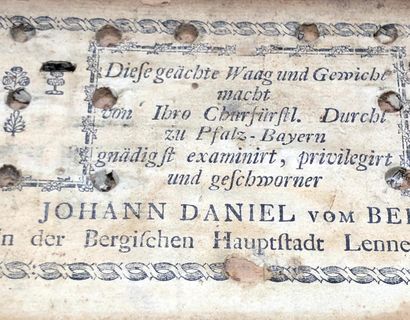 Dieſe geächte Waag und Gewicht
macht
von Ihro Churfürſtl. Durchl
zu Pfalz-Bayern
gnädigſt examinirt, privilegirt
und geſchworner
JOHANN DANIEL VOM BER
in der Bergiſchen Hauptſtadt Lenne